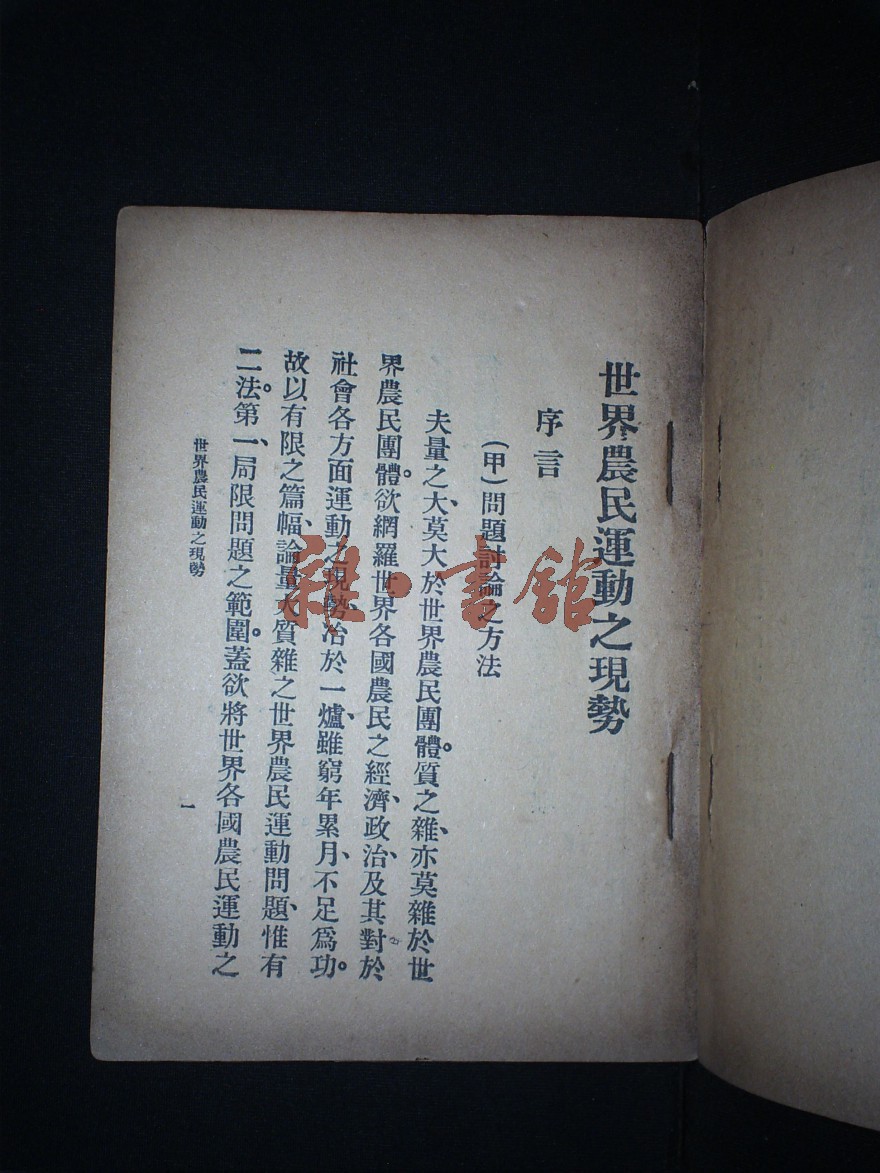 世界農民運動之現勢
序言
（甲）問題討論之方法
夫量之大、莫大於世界農民團體。質之雜、亦莫雜於世
界農民團體。欲網羅世界各國農民之經濟、政治、及其對於
社會各方面運動之現勢、冶於一爐、雖窮年累月、不足爲功。
故以有限之篇幅、論量大質雜之世界農民運動問題、惟有
二法。第一、局限問題之範圍。蓋欲將世界各國農民運動之
世界農民運動之現勢
一
雜·書館